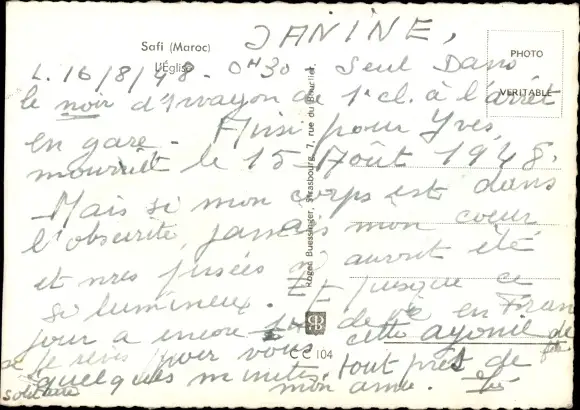 Safi (Maroc)
L'Église
PHOTO
VÉRITABLE
JANINE,
L. 16/8/48 - 0H30 - Seul Dans
le noir d'1 wagon de 1e cl. à l'arrêt
en gare - Ainsi pour Yves,
mourrait le 15 Août 1948.
- Mais si mon corps est dans
l'obscurité, jamais mon coeur
et mes pensées n'auront été
si lumineux. Et puisque ce
jour a encore de vie en
je reviens pour vous cette agonie de
quelques minutes, tout près de
solitaire mon amie.
Roger Buessinger, Strasbourg, 7, rue du Bouclier.
CC 104